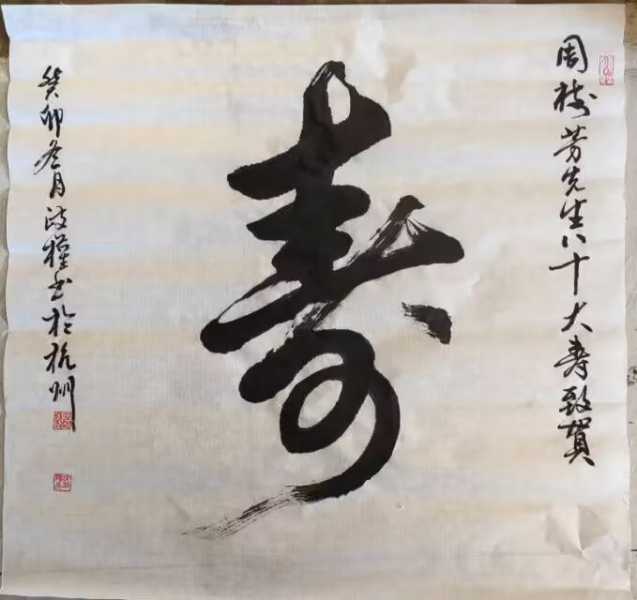 周树芳先生八十大寿致贺
寿
癸卯冬月政权书於杭州